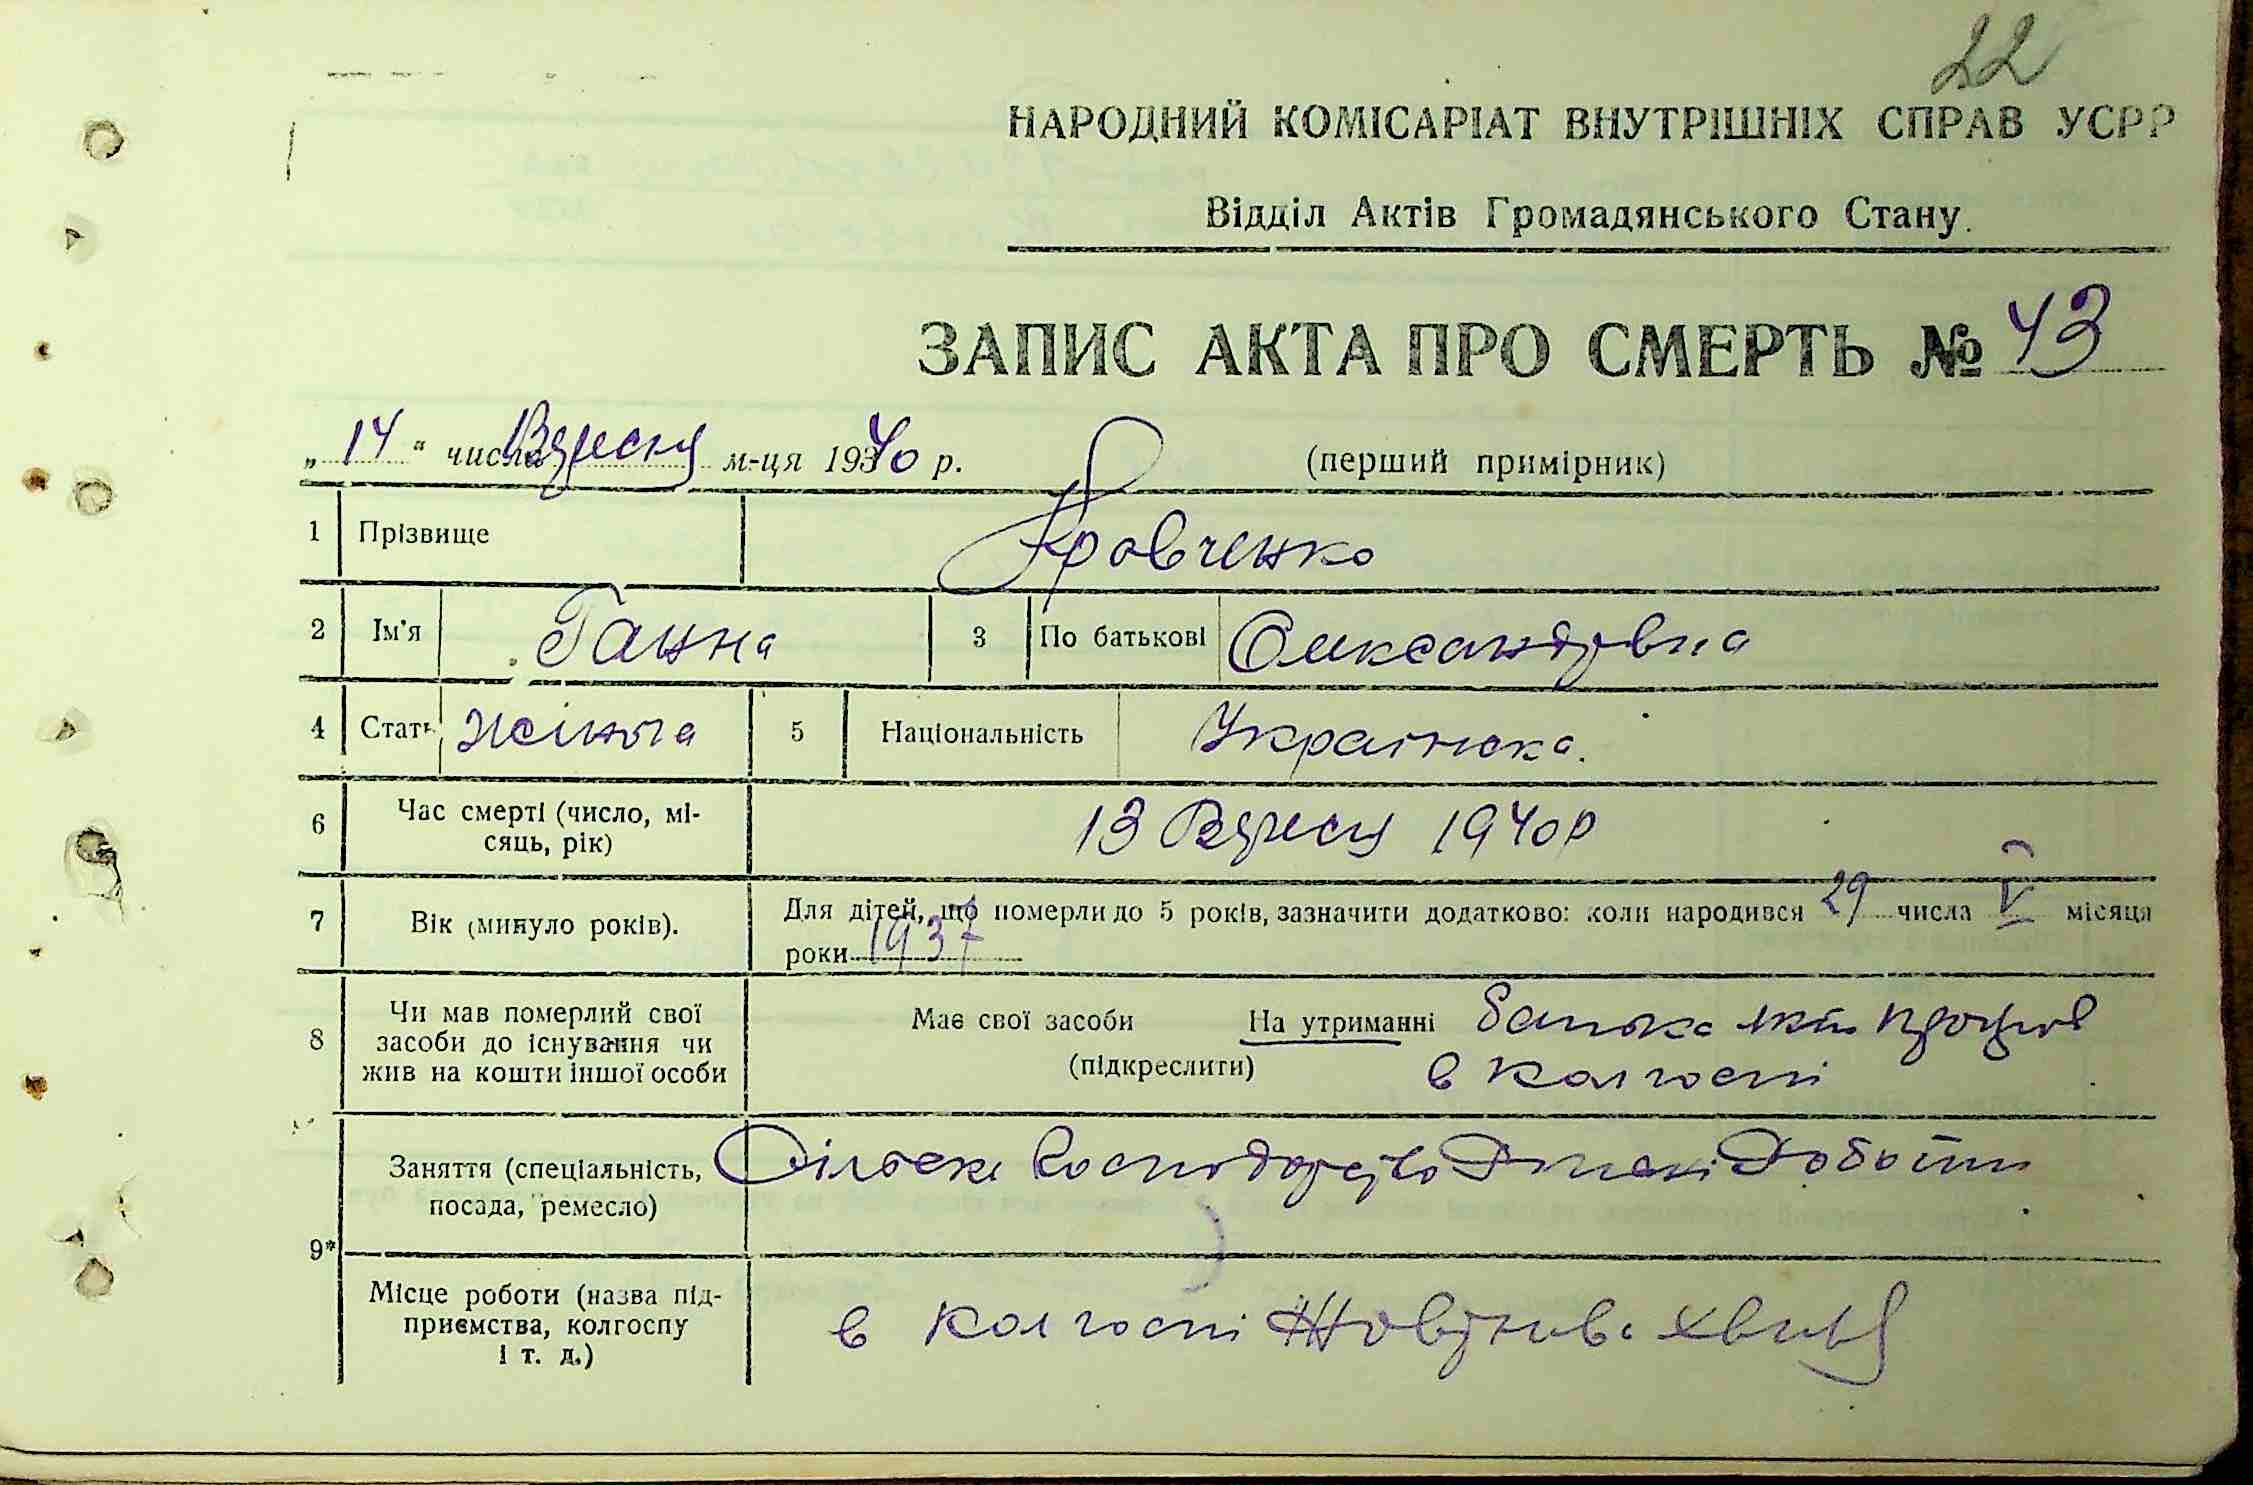 22
НАРОДНИЙ КОМІСАРІАТ ВНУТРІШНІХ СПРАВ УСРР
Відділ Актів Громадянського Стану.
ЗАПИС АКТА ПРО СМЕРТЬ № 43
„14“ числа Вересня м-ця 1940 р. (перший примірник)
1 Прізвище Кровченко
2 Ім'я Ганна 3 По батькові Олександровна
4 Стать жіноча 5 Національність Українска.
6 Час смерті (число, мі-
сяць, рік) 13 Вересня 1940р
7 Вік (минуло років). Для дітей, що померли до 5 років, зазначити додатково: коли народився 29 числа V місяця
роки 1937
8 Чи мав померлий свої
засоби до існування чи
жив на кошти іншої особи
Має свої засоби На утриманні батька
(підкреслити) в колгоспі
9* Заняття (спеціальність,
посада, ремесло) Сільске Господарство
Місце роботи (назва під-
приємства, колгоспу
і т. д.) в колгоспі Жовтнева хвиля